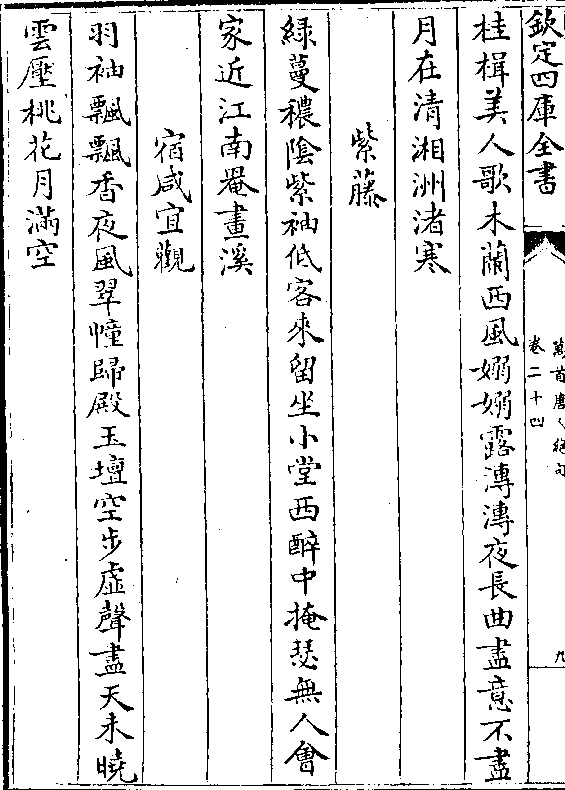 欽定四庫全書
萬首唐人絕句
卷二十四
九
桂楫美人歌木蘭西風嫋嫋露漙漙夜長曲盡意不盡
月在清湘洲渚寒
紫藤
緑蔓穠陰紫袖低客來留坐小堂西醉中掩瑟無人會
家近江南罨畫溪
宿咸宜觀
羽袖飄飄香夜風翠幢歸殿玉壇空步虛聲盡天未曉
雲壓桃花月滿空